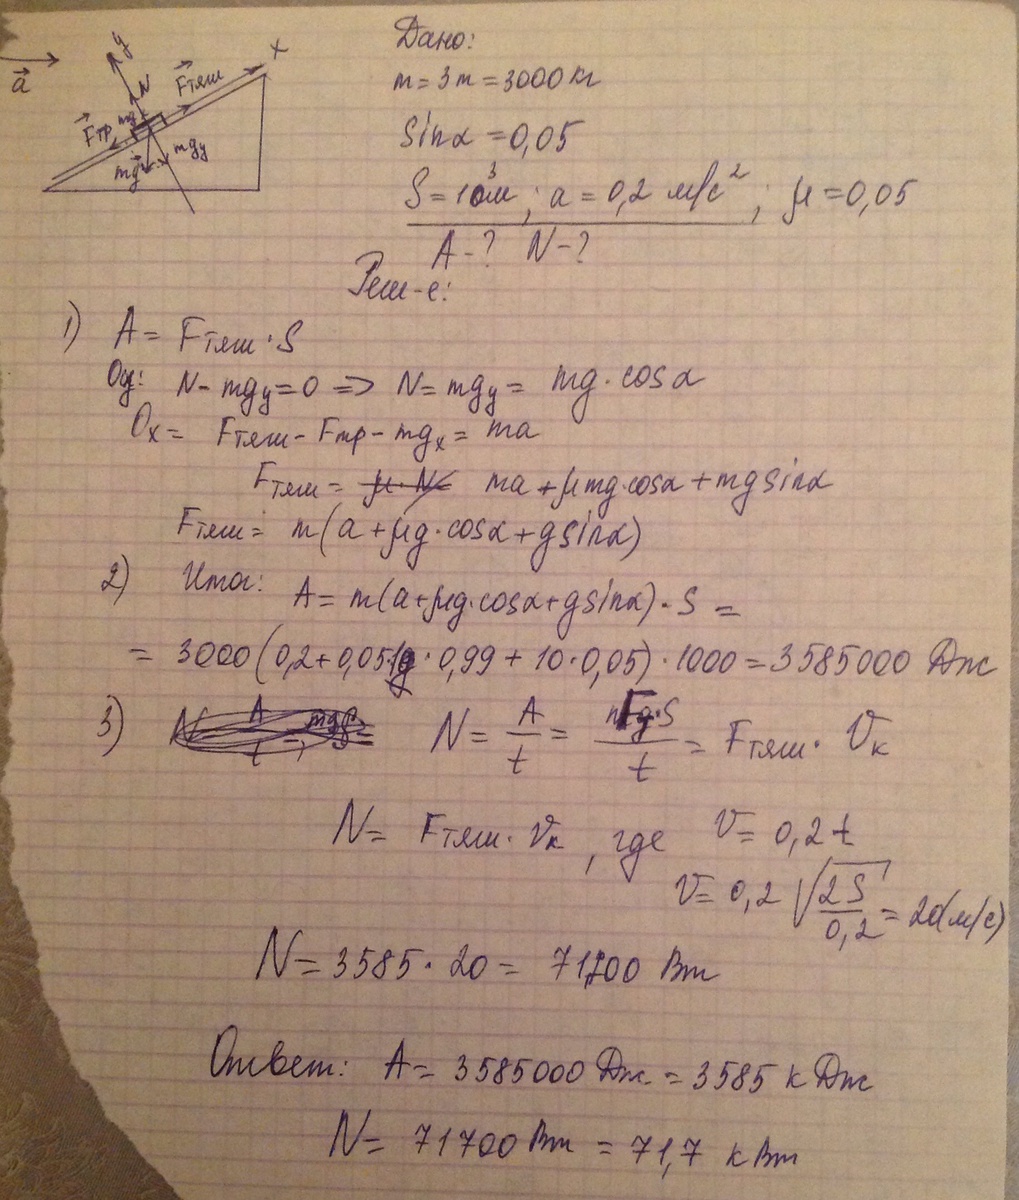 y
x
a⃗
N
F⃗тяш
F⃗тр
mgx
mgy
mg⃗
Дано:
m = 3т = 3000 кг
sinα = 0,05
S = 10³м ; a = 0,2 м/с² ; μ = 0,05
A - ? N - ?
Реш-е:
1) A = Fтяш · S
Oy: N - mgy = 0 => N = mgy = mg · cosα
Ox = Fтяш - Fтр - mgx = ma
Fтяш = ma + μmg·cosα + mg sinα
Fтяш = m(a + μg·cosα + g sinα)
2) Итог: A = m(a + μg·cosα + g sinα) · S =
= 3000 (0,2 + 0,05·10 · 0,99 + 10·0,05) · 1000 = 3585000 Дж
3) N = A/t = F·S/t = Fтяш · Vк
N = Fтяш · Vк , где V = 0,2 t
V = 0,2 √(2S/0,2) = 20(м/с)
N = 3585 · 20 = 71700 Вт
Ответ: A = 3585000 Дж = 3585 кДж
N = 71700 Вт = 71,7 кВт